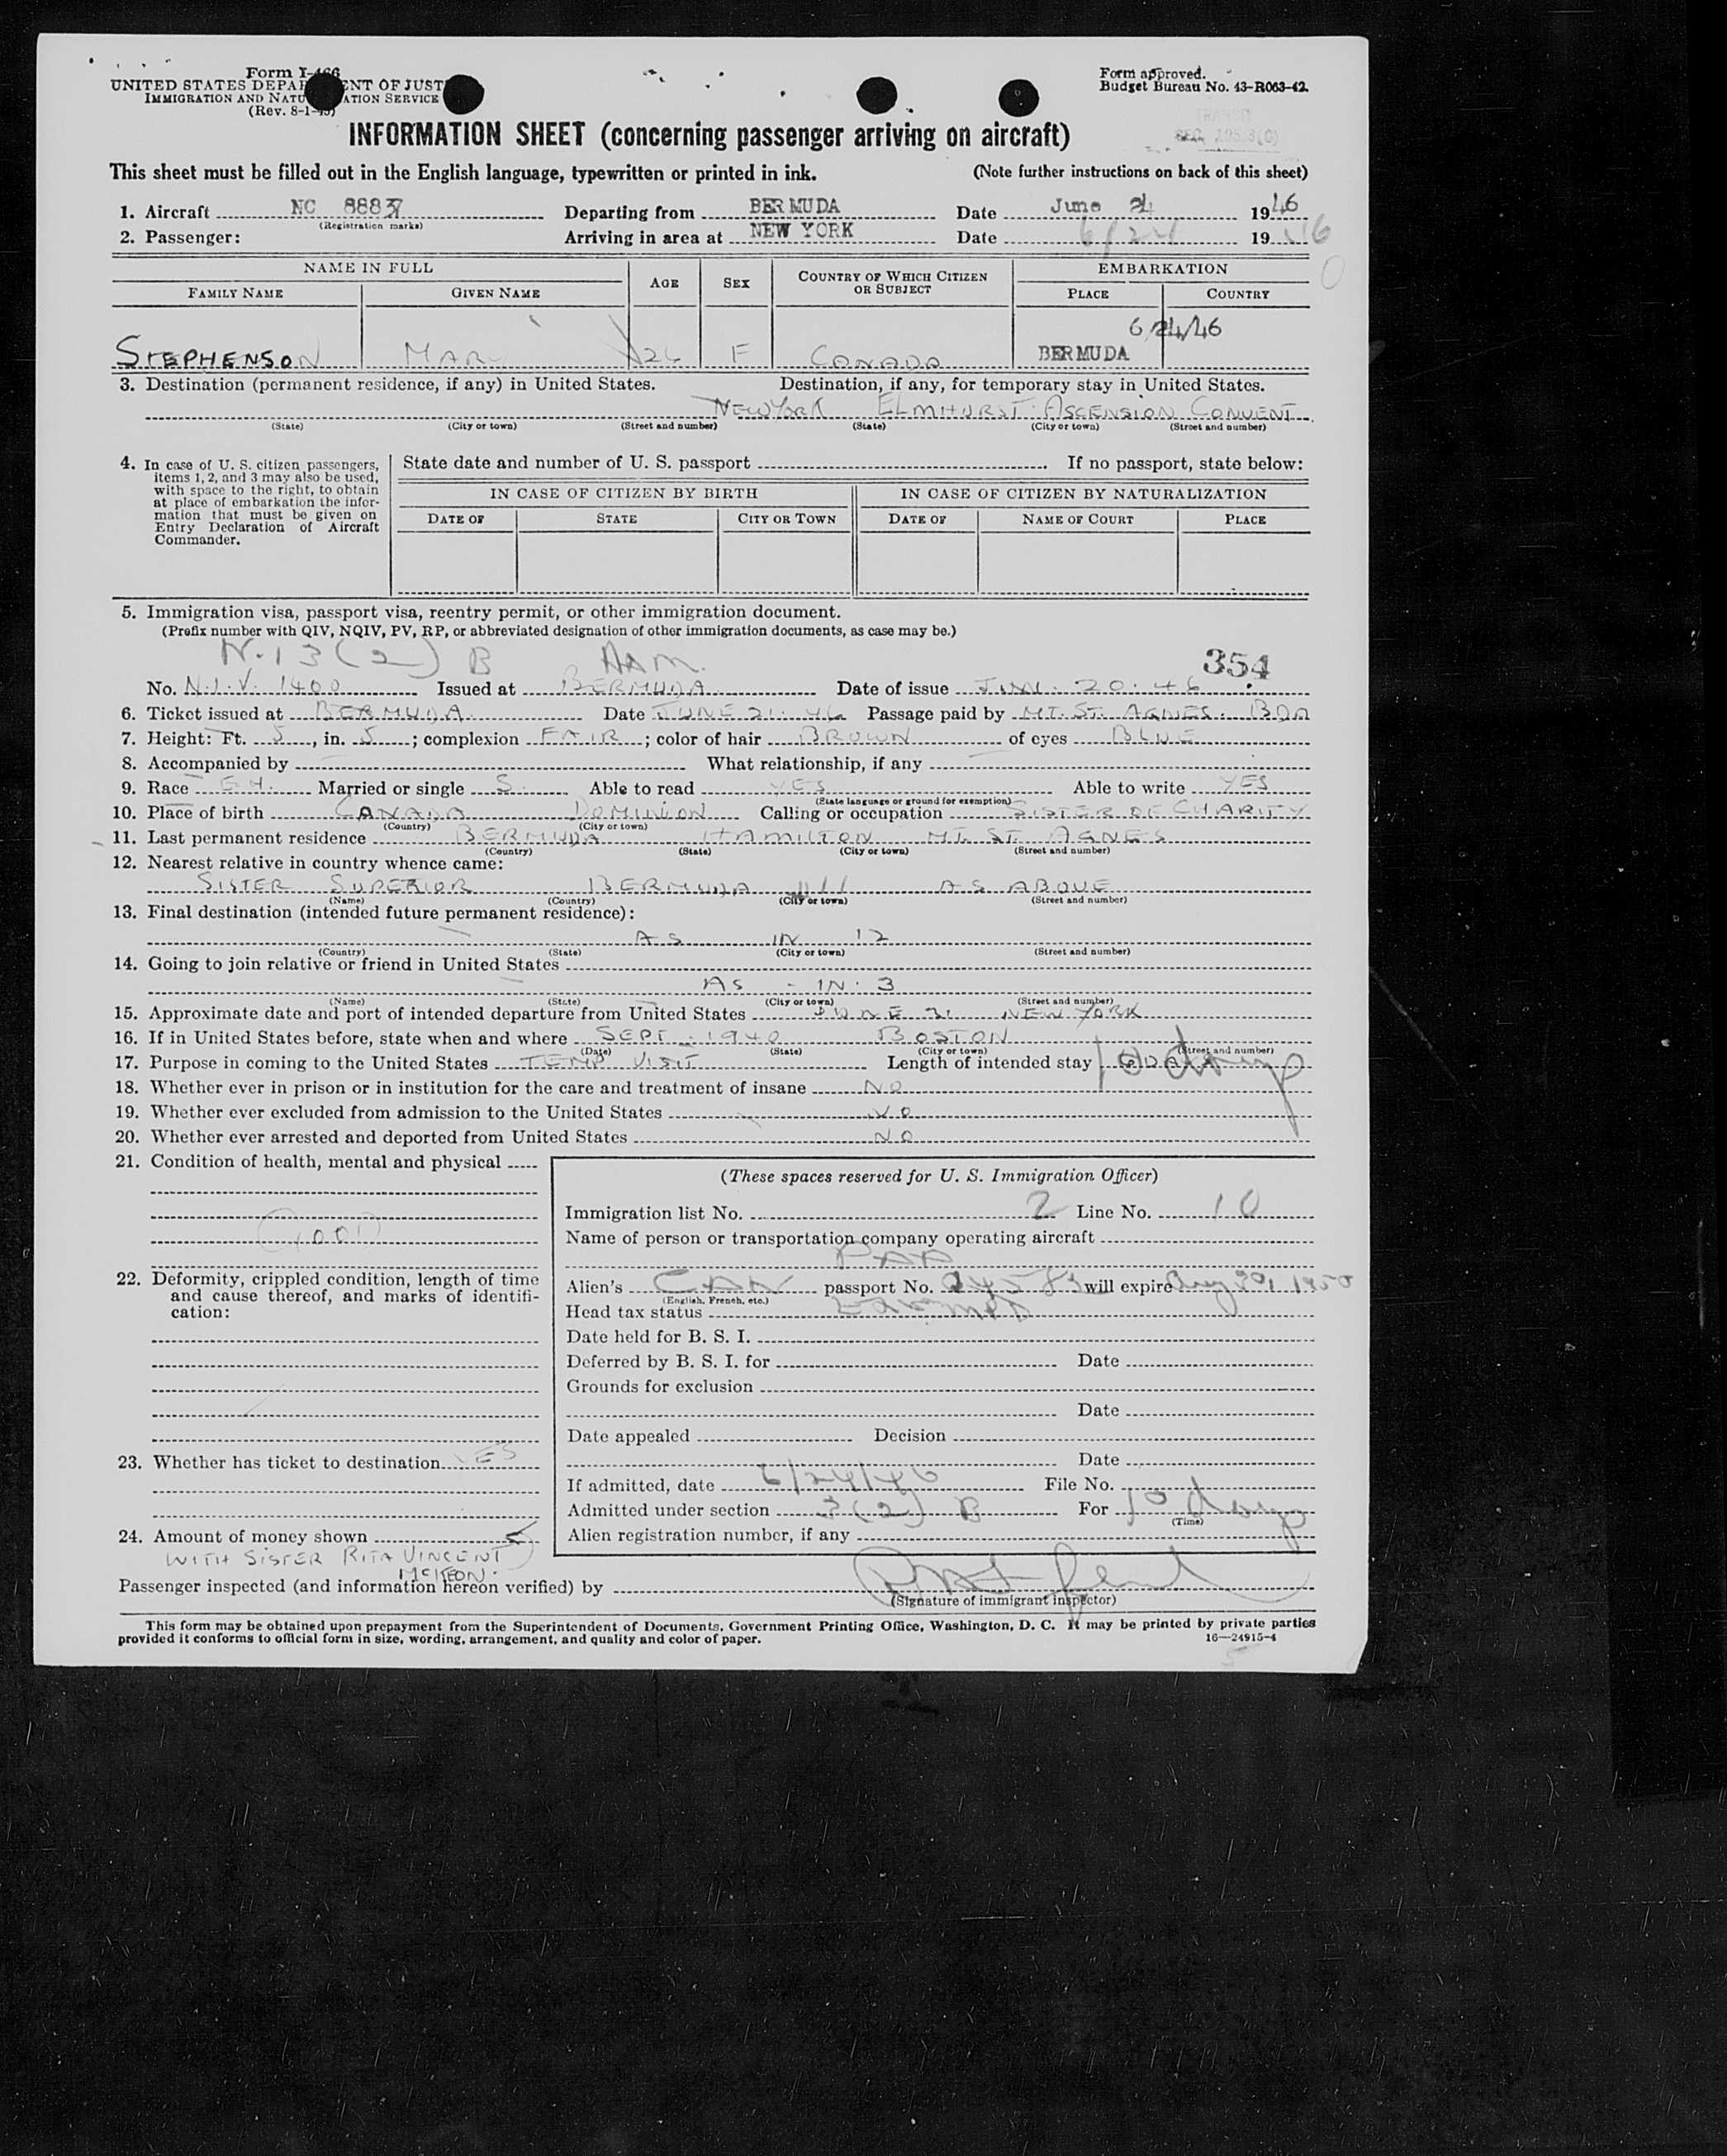 Form I-466
UNITED STATES DEPARTMENT OF JUSTICE
IMMIGRATION AND NATURALIZATION SERVICE
(Rev. 8-1-45)
Form approved.
Budget Bureau No. 43-R063-42.
INFORMATION SHEET (concerning passenger arriving on aircraft)
This sheet must be filled out in the English language, typewritten or printed in ink. (Note further instructions on back of this sheet)
1. Aircraft NC 88837 Departing from BERMUDA Date June 24 1946
(Registration marks)
2. Passenger: Arriving in area at NEW YORK Date 6/24 1946
NAME IN FULL AGE SEX COUNTRY OF WHICH CITIZEN OR SUBJECT EMBARKATION
FAMILY NAME GIVEN NAME PLACE COUNTRY
6/24/46
STEPHENSON MARY 26 F CANADA BERMUDA
3. Destination (permanent residence, if any) in United States. Destination, if any, for temporary stay in United States.
NEW YORK ELMHURST. ASCENSION CONVENT
(State) (City or town) (Street and number) (State) (City or town) (Street and number)
4. In case of U. S. citizen passengers, items 1, 2, and 3 may also be used, with space to the right, to obtain at place of embarkation the information that must be given on Entry Declaration of Aircraft Commander.
State date and number of U. S. passport If no passport, state below:
IN CASE OF CITIZEN BY BIRTH IN CASE OF CITIZEN BY NATURALIZATION
DATE OF STATE CITY OR TOWN DATE OF NAME OF COURT PLACE
5. Immigration visa, passport visa, reentry permit, or other immigration document.
(Prefix number with QIV, NQIV, PV, RP, or abbreviated designation of other immigration documents, as case may be.)
3(2) B 354
No. N.I.V. 1400 Issued at BERMUDA Date of issue JUN. 20. 46
6. Ticket issued at BERMUDA. Date JUNE 21. 46 Passage paid by MT. ST. AGNES. BDA
7. Height: Ft. 5, in. 5; complexion FAIR; color of hair BROWN of eyes BLUE
8. Accompanied by What relationship, if any
9. Race Married or single S. Able to read YES Able to write YES
(State language or ground for exemption)
10. Place of birth CANADA DOMINION Calling or occupation SISTER OF CHARITY
(Country) (City or town)
11. Last permanent residence BERMUDA HAMILTON MT. ST. AGNES
(Country) (State) (City or town) (Street and number)
12. Nearest relative in country whence came:
SISTER SUPERIOR BERMUDA AS ABOVE
(Name) (Country) (City or town) (Street and number)
13. Final destination (intended future permanent residence):
AS IN 12
(Country) (State) (City or town) (Street and number)
14. Going to join relative or friend in United States
AS - IN. 3
(Name) (State) (City or town) (Street and number)
15. Approximate date and port of intended departure from United States NEW YORK
16. If in United States before, state when and where SEPT - 1940 BOSTON
(Date) (State) (City or town) (Street and number)
17. Purpose in coming to the United States TEMP VISIT Length of intended stay 10 days
18. Whether ever in prison or in institution for the care and treatment of insane NO
19. Whether ever excluded from admission to the United States NO
20. Whether ever arrested and deported from United States NO
21. Condition of health, mental and physical
22. Deformity, crippled condition, length of time and cause thereof, and marks of identification:
23. Whether has ticket to destination YES
24. Amount of money shown
WITH SISTER RITA VINCENT
MCKEON.
(These spaces reserved for U. S. Immigration Officer)
Immigration list No. 2 Line No. 10
Name of person or transportation company operating aircraft
PAA
Alien's CAN passport No. will expire Aug 30, 1950
(English, French, etc.)
Head tax status
Date held for B. S. I.
Deferred by B. S. I. for Date
Grounds for exclusion
Date
Date appealed Decision
Date
If admitted, date 6/24/46 File No.
Admitted under section 3(2) B For 10 days
(Time)
Alien registration number, if any
Passenger inspected (and information hereon verified) by
(Signature of immigrant inspector)
This form may be obtained upon prepayment from the Superintendent of Documents, Government Printing Office, Washington, D. C. It may be printed by private parties
provided it conforms to official form in size, wording, arrangement, and quality and color of paper. 16—24915-4